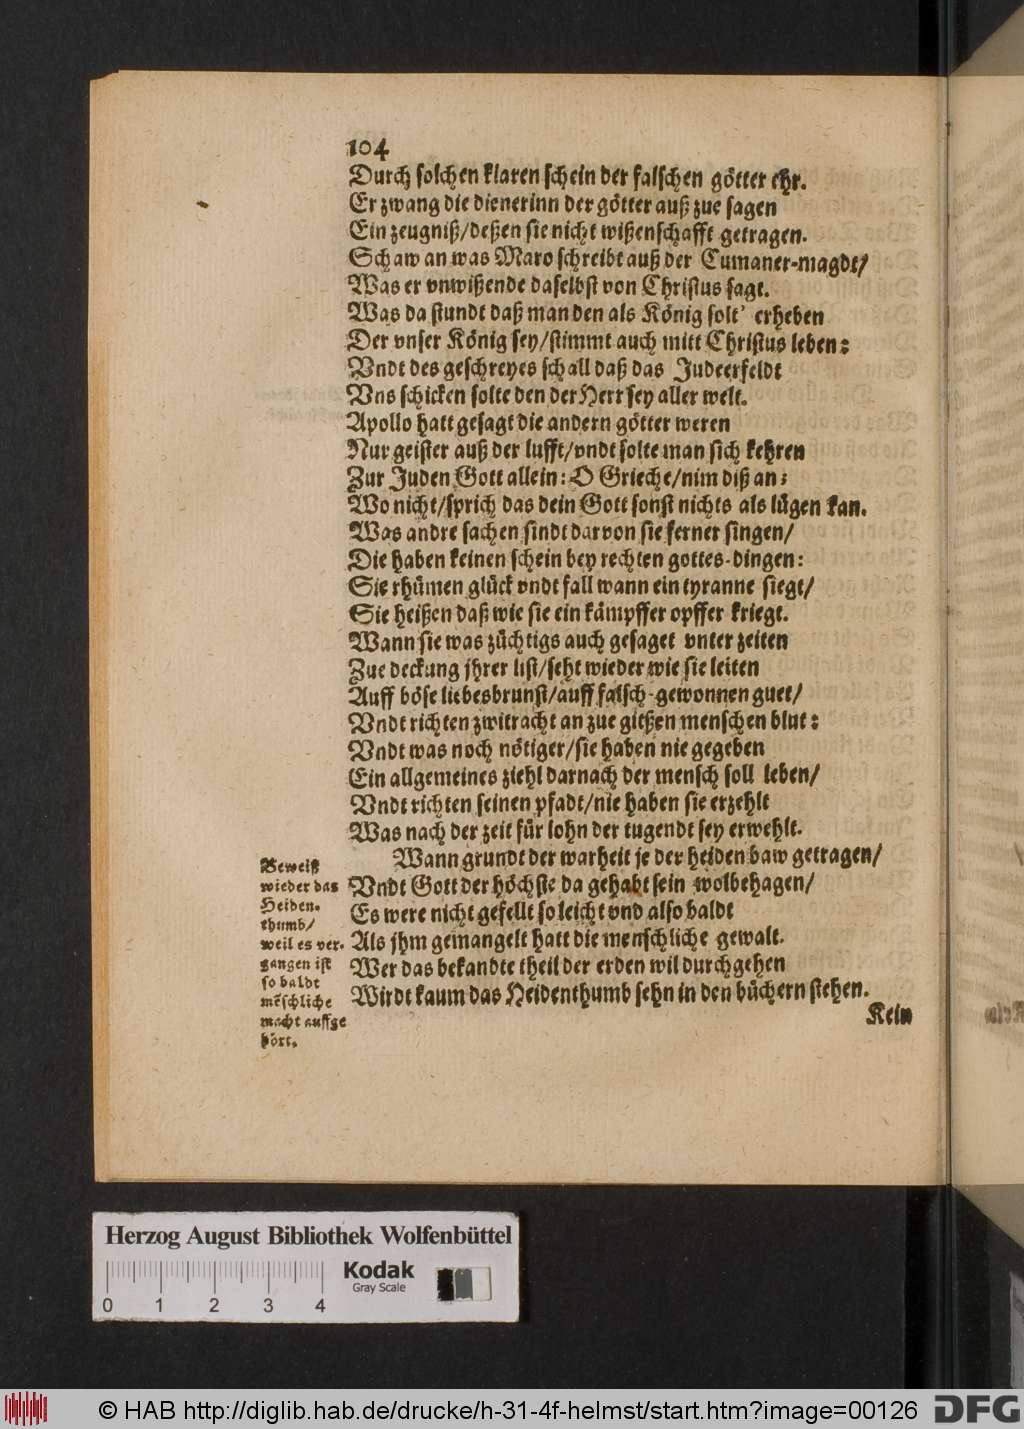 104
Durch solchen klaren schein der falschen götter ehr.
Er zwang die dienerinn der götter auß zue sagen
Ein zeugniß/deßen sie nicht wißenschafft getragen.
Schaw an was Maro schreibt auß der Cumaner-magdt/
Was er vnwißende daselbst von Christus sagt.
Was da stundt daß man den als König solt' erheben
Der vnser König sey/stimmt auch mitt Christus leben:
Vndt des geschreyes schall daß das Judeerfeldt
Vns schicken solte den der Herr sey aller welt.
Apollo hatt gesagt die andern götter weren
Nur geister auß der lufft/vndt solte man sich kehren
Zur Juden Gott allein: O Grieche/nim diß an;
Wo nicht/sprich das dein Gott sonst nichts als lügen kan.
Was andre sachen sindt darvon sie ferner singen/
Die haben keinen schein bey rechten gottes-dingen:
Sie rhümen glück vndt fall wann ein tyranne siegt/
Sie heißen daß wie sie ein kämpffer opffer kriegt.
Wann sie was züchtigs auch gesaget vnter zeiten
Zue deckung jhrer list/seht wieder wie sie leiten
Auff böse liebesbrunst/auff falsch-gewonnen guet/
Vndt richten zwitracht an zue gießen menschen blut:
Vndt was noch nötiger/sie haben nie gegeben
Ein allgemeines ziehl darnach der mensch soll leben/
Vndt richten seinen pfadt/nie haben sie erzehlt
Was nach der zeit für lohn der tugendt sey erwehlt.
Wann grundt der warheit je der heiden baw getragen/
Vndt Gott der höchste da gehabt sein wolbehagen/
Es were nicht gefellt so leicht vnd also baldt
Als jhm gemangelt hatt die menschliche gewalt.
Wer das bekandte theil der erden wil durchgehen
Wirdt kaum das Heidenthumb sehn in den büchern stehen.
Kein
Beweiß
wieder das
Heiden-
thumb/
weil es ver-
gangen ist
so baldt
mẽschliche
macht auffge
hört.
Herzog August Bibliothek Wolfenbüttel
Kodak
Gray Scale
0 1 2 3 4
© HAB http://diglib.hab.de/drucke/h-31-4f-helmst/start.htm?image=00126
DFG